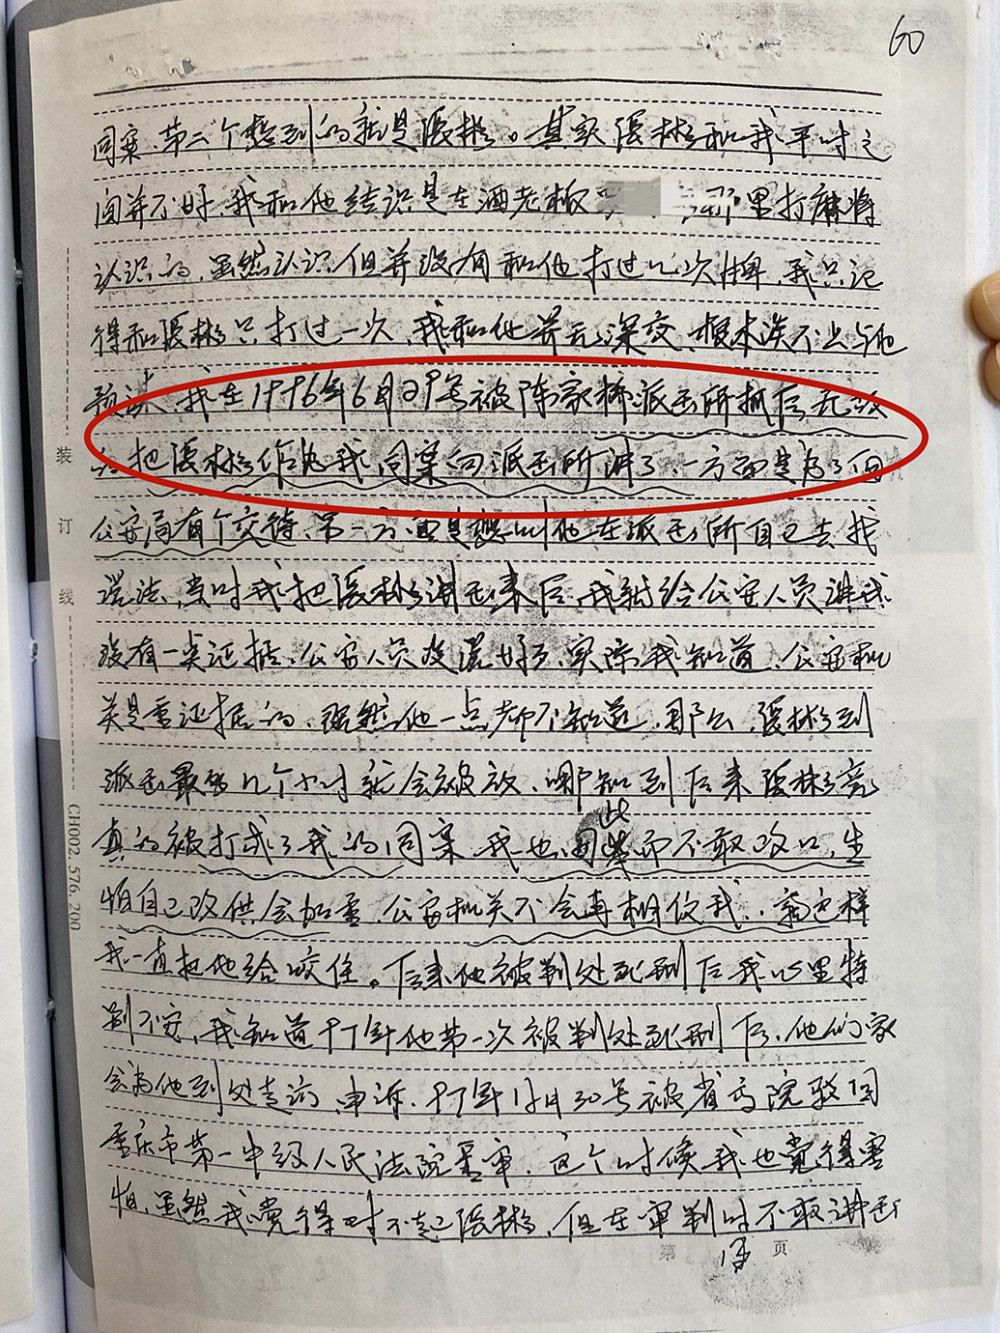 60
同案、第二个想到的就是张彬。其实张彬和我平时之
间并不好、我和他结识是在酒老板 那里打麻将
认识的、虽然认识、但并没有和他打过几次牌、我只记
得和张彬只打过一次、我和他并无深交、根本谈不上与他
预谋、我在1996年6月29号被陈家桥派出所抓后、无故
的把张彬作为我同案向派出所讲了、一方面是为了向
公安局有个交待、第二方面是想叫他在派出所自己去找
说法、当时我把张彬讲出来后、我就给公安人员讲我
没有一点证据、公安人员没说好多、实际我知道、公安机
关是重证据的、既然他一点都不知道、那么、张彬到
派出最多几个小时就会被放、哪知到后来张彬竟
真的被打成了我的同案、我也因此而不敢改口、生
怕自己改供会加重、公安机关不会再相信我、就这样
我一直把他给咬住。后来他被判处死刑后我心里特
别不安、我知道97年他第一次被判处死刑后、他们家
会为他到处走访、申诉、97年12月30号被省高院驳回
重庆市第一中级人民法院重审、这个时候我也觉得害
怕、虽然我觉得对不起张彬、但在审判时不敢讲出
装
订
线
CH002.576.200
第 页